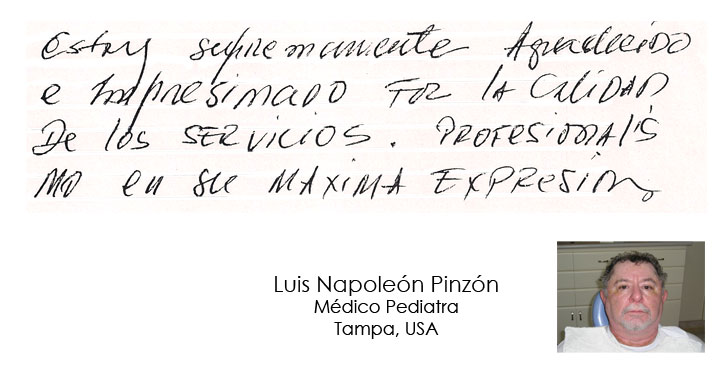 Estoy supremamente Agradecido
e Impresionado Por la Calidad
De los SERVICIOS. PROFESIONALIS
MO en su MAXIMA EXPRESIón
Luis Napoleón Pinzón
Médico Pediatra
Tampa, USA